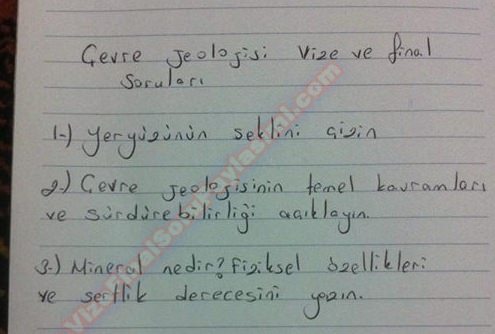 Çevre jeolojisi Vize ve final
Soruları
1-) Yeryüzünün şeklini çizin
2-) Çevre jeolojisinin temel kavramları
ve sürdürebilirliği açıklayın.
3-) Mineral nedir? Fiziksel özellikleri
ve sertlik derecesini yazın.
VizeFinalSoruPaylasimi.com